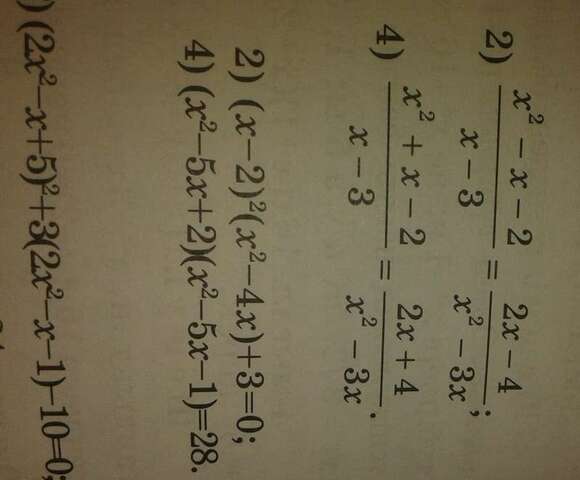 2) \frac{x^2 - x - 2}{x - 3} = \frac{2x - 4}{x^2 - 3x};
4) \frac{x^2 + x - 2}{x - 3} = \frac{2x + 4}{x^2 - 3x}.
2) (x-2)^2(x^2-4x)+3=0;
4) (x^2-5x+2)(x^2-5x-1)=28.
) (2x^2-x+5)^2+3(2x^2-x-1)-10=0;